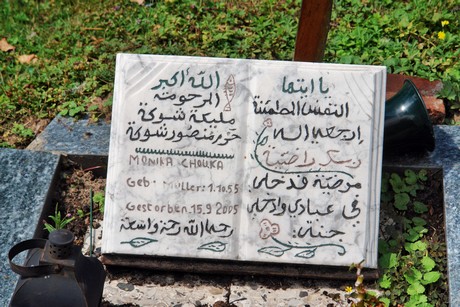 الله اكبر
المرحومة
مليكة شوكة
حرم منصور شوكة
MONIKA CHOUKA
Geb: Müller: 1.10.55
Gestorben: 15.9.2005
رحمها الله رحمة واسعة
يا ايتها
النفس المطمئنة
إرجعي الى
ربك راضية
مرضية فدخلي
في عبادي وادخلي
جنتي